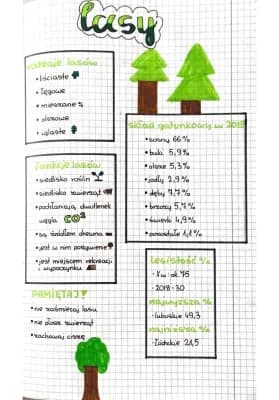 lasy
rodzaje lasów
• liściaste
• łęgowe
• mieszane
• olsowe
• iglaste
funkcje lasów
• siedlisko roślin
• siedlisko zwierząt
• pochłaniają dwutlenek
węgla CO2
• są źródłem drewna
• jest w nim pożywienie
• jest miejscem rekreacji
i wypoczynku
PAMIĘTAJ!
• nie zaśmiecaj lasu
• nie płosz zwierząt
• zachowaj ciszę
skład gatunkowy w 2018
• sosny 66%
• buki 5,9%
• olsze 5,3%
• jodły 2,9%
• dęby 7,7%
• brzozy 5,7%
• świerki 4,9%
• pozostałe 1,1%
lesistość %
• X w. ok. 75
• 2018 - 30
najwyższa %
• lubuskie 49,3
najniższa %
• łódzkie 21,5